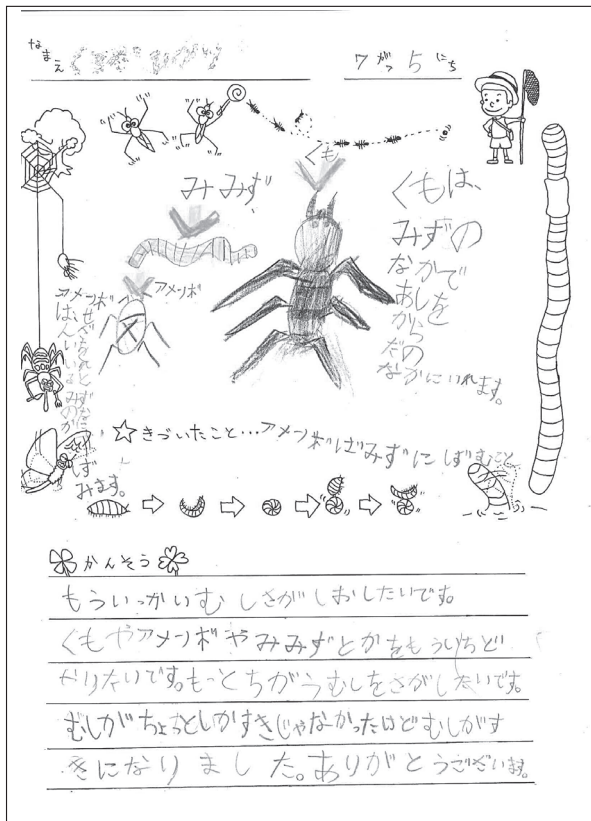 なまえ
7がつ5にち
くも
みみず
くもは、
みずの
なかで
あしを
からだの
なかにいれます。
アメンボ
アメンボ
は、
みずに
しずみます。
☆きづいたこと…アメンボはみずにしずむこと
かんそう
もういっかいむしさがしおしたいです。
くもやアメンボやみみずとかをもういちど
やりたいです。もっとちがうむしをさがしたいです。
むしがちょっとしかすきじゃなかったけどむしがす
きになりました。ありがとうございます。